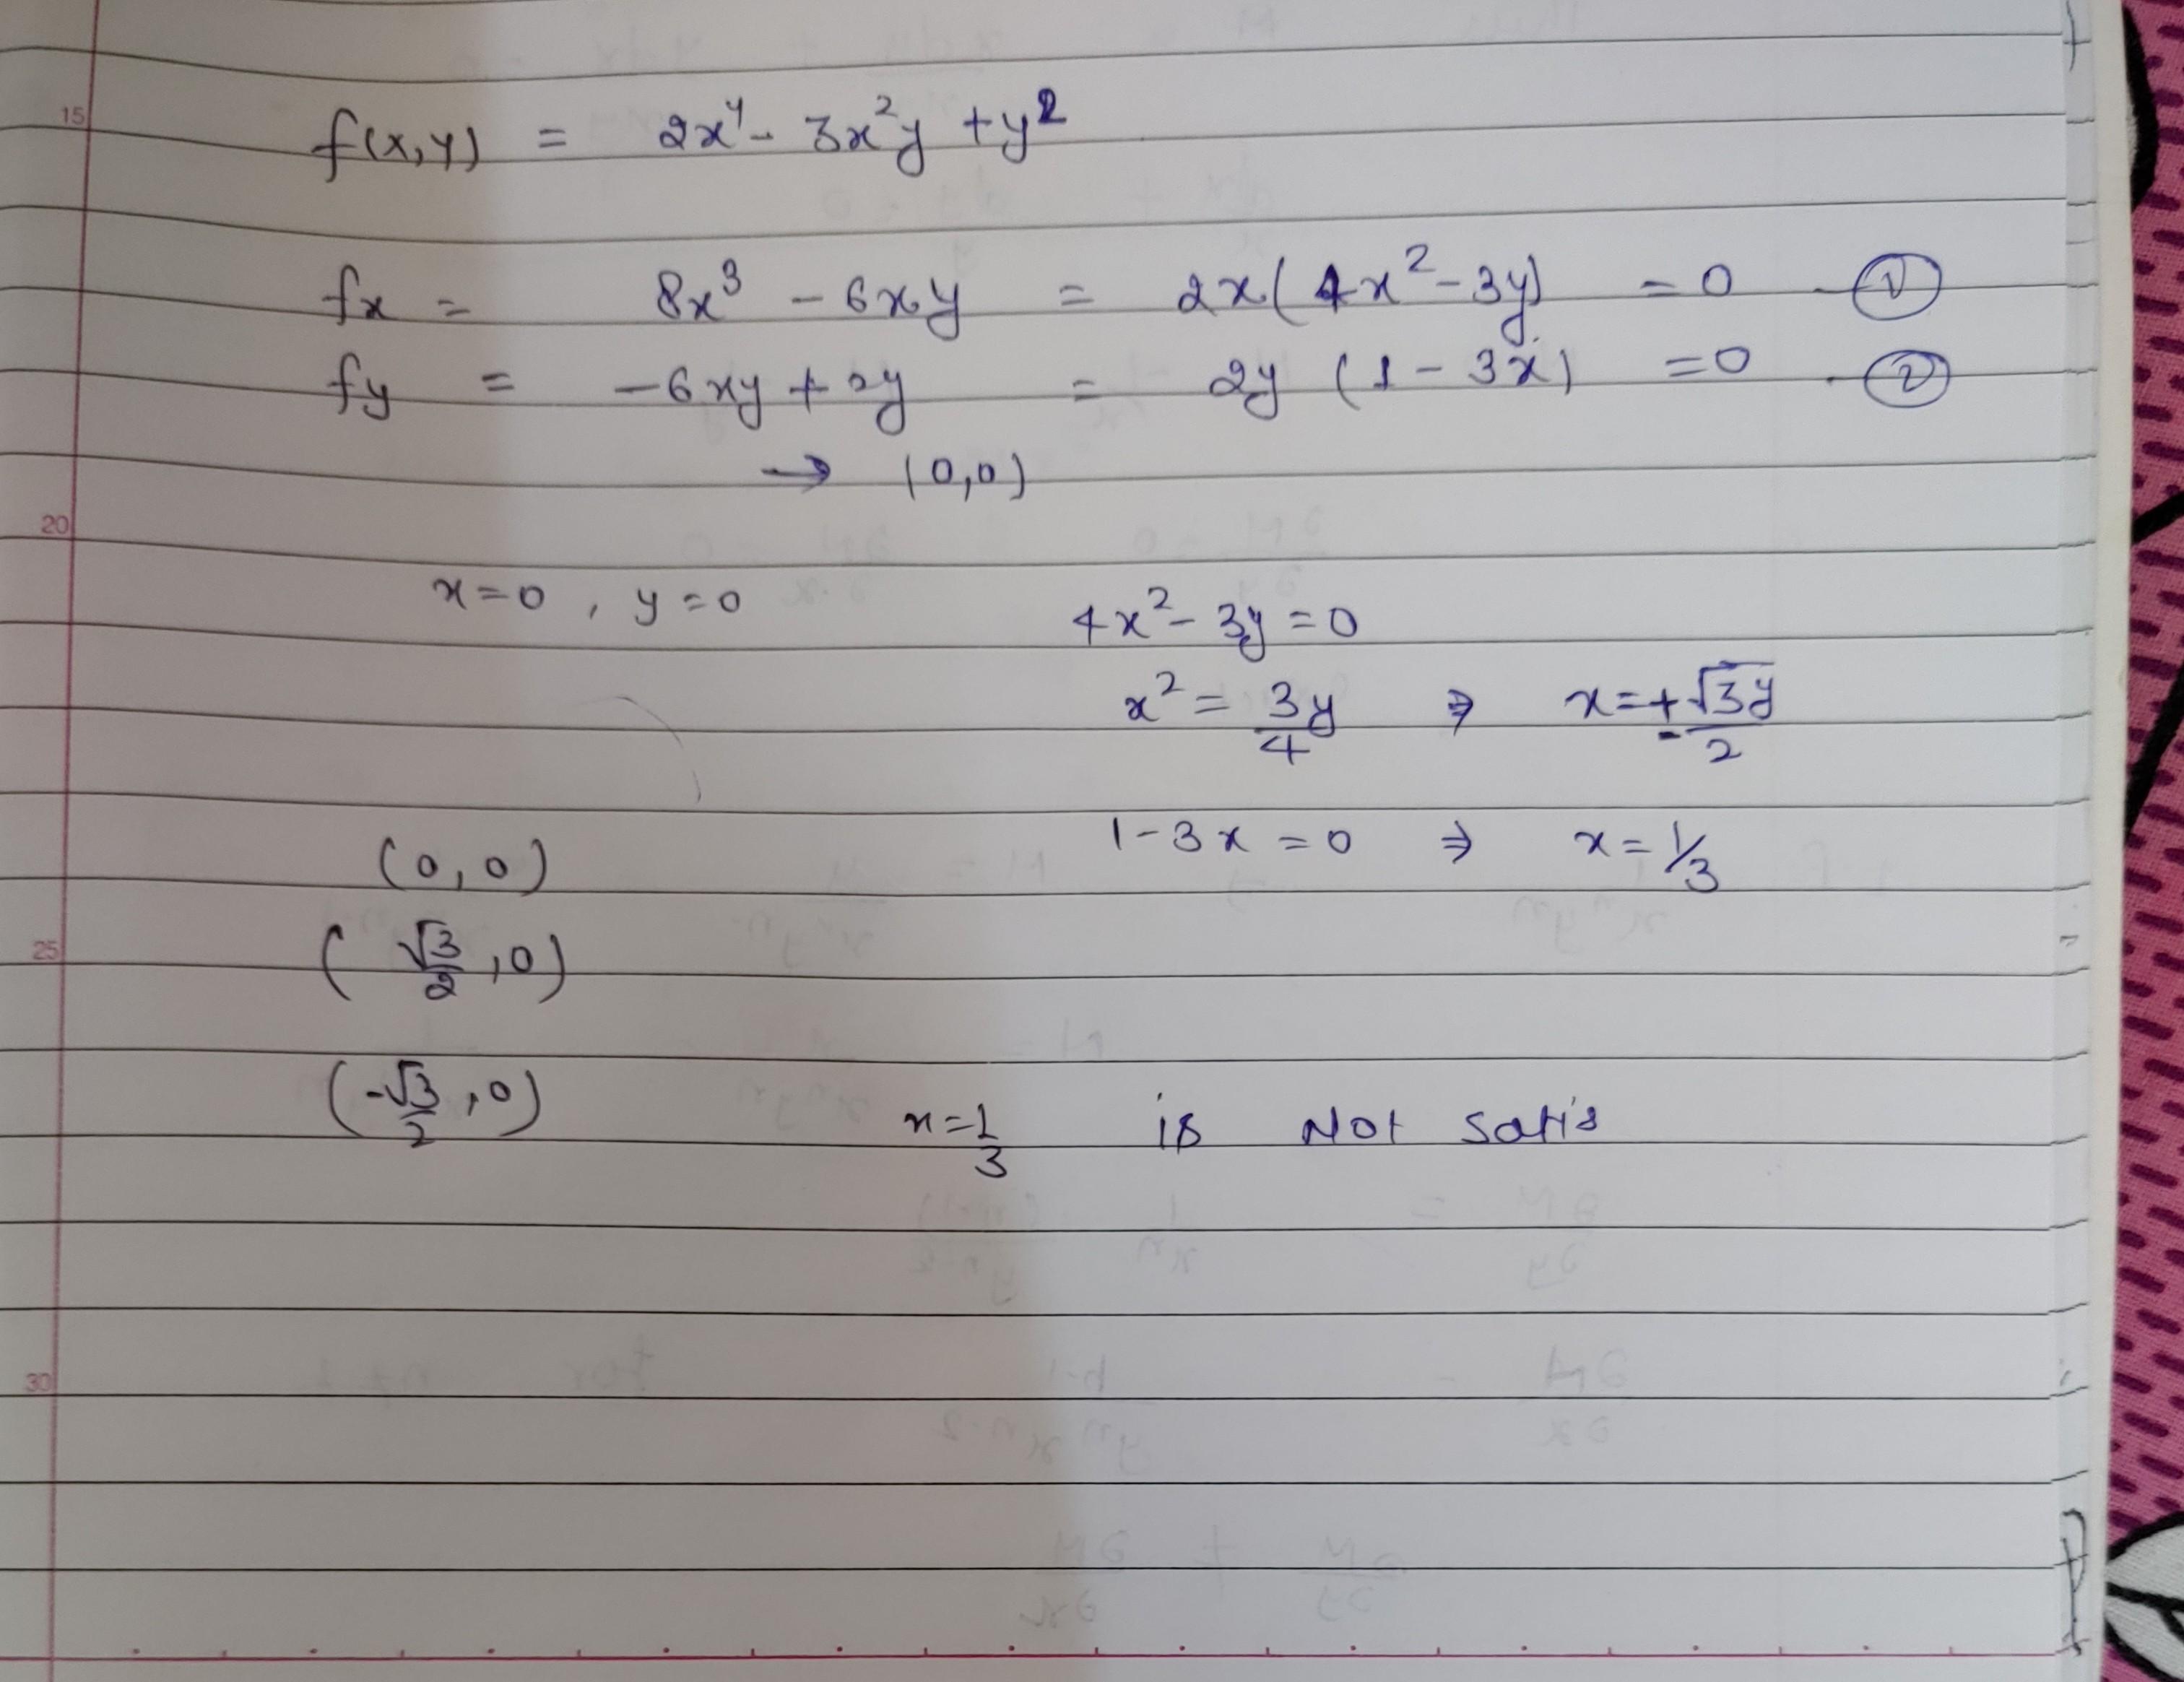 15
f(x,y) = 2x⁴ - 3x²y + y²
fx = 8x³ - 6xy = 2x(4x² - 3y) = 0 - ①
fy = -6xy + 2y = 2y (1 - 3x) = 0 - ②
→ (0,0)
20
x=0 , y=0
4x² - 3y = 0
x² = 3y/4 ⇒ x = ± √3y/2
1 - 3x = 0 ⇒ x = 1/3
(0,0)
25
(√3/2, 0)
(-√3/2, 0)
x = 1/3 is Not satis
30